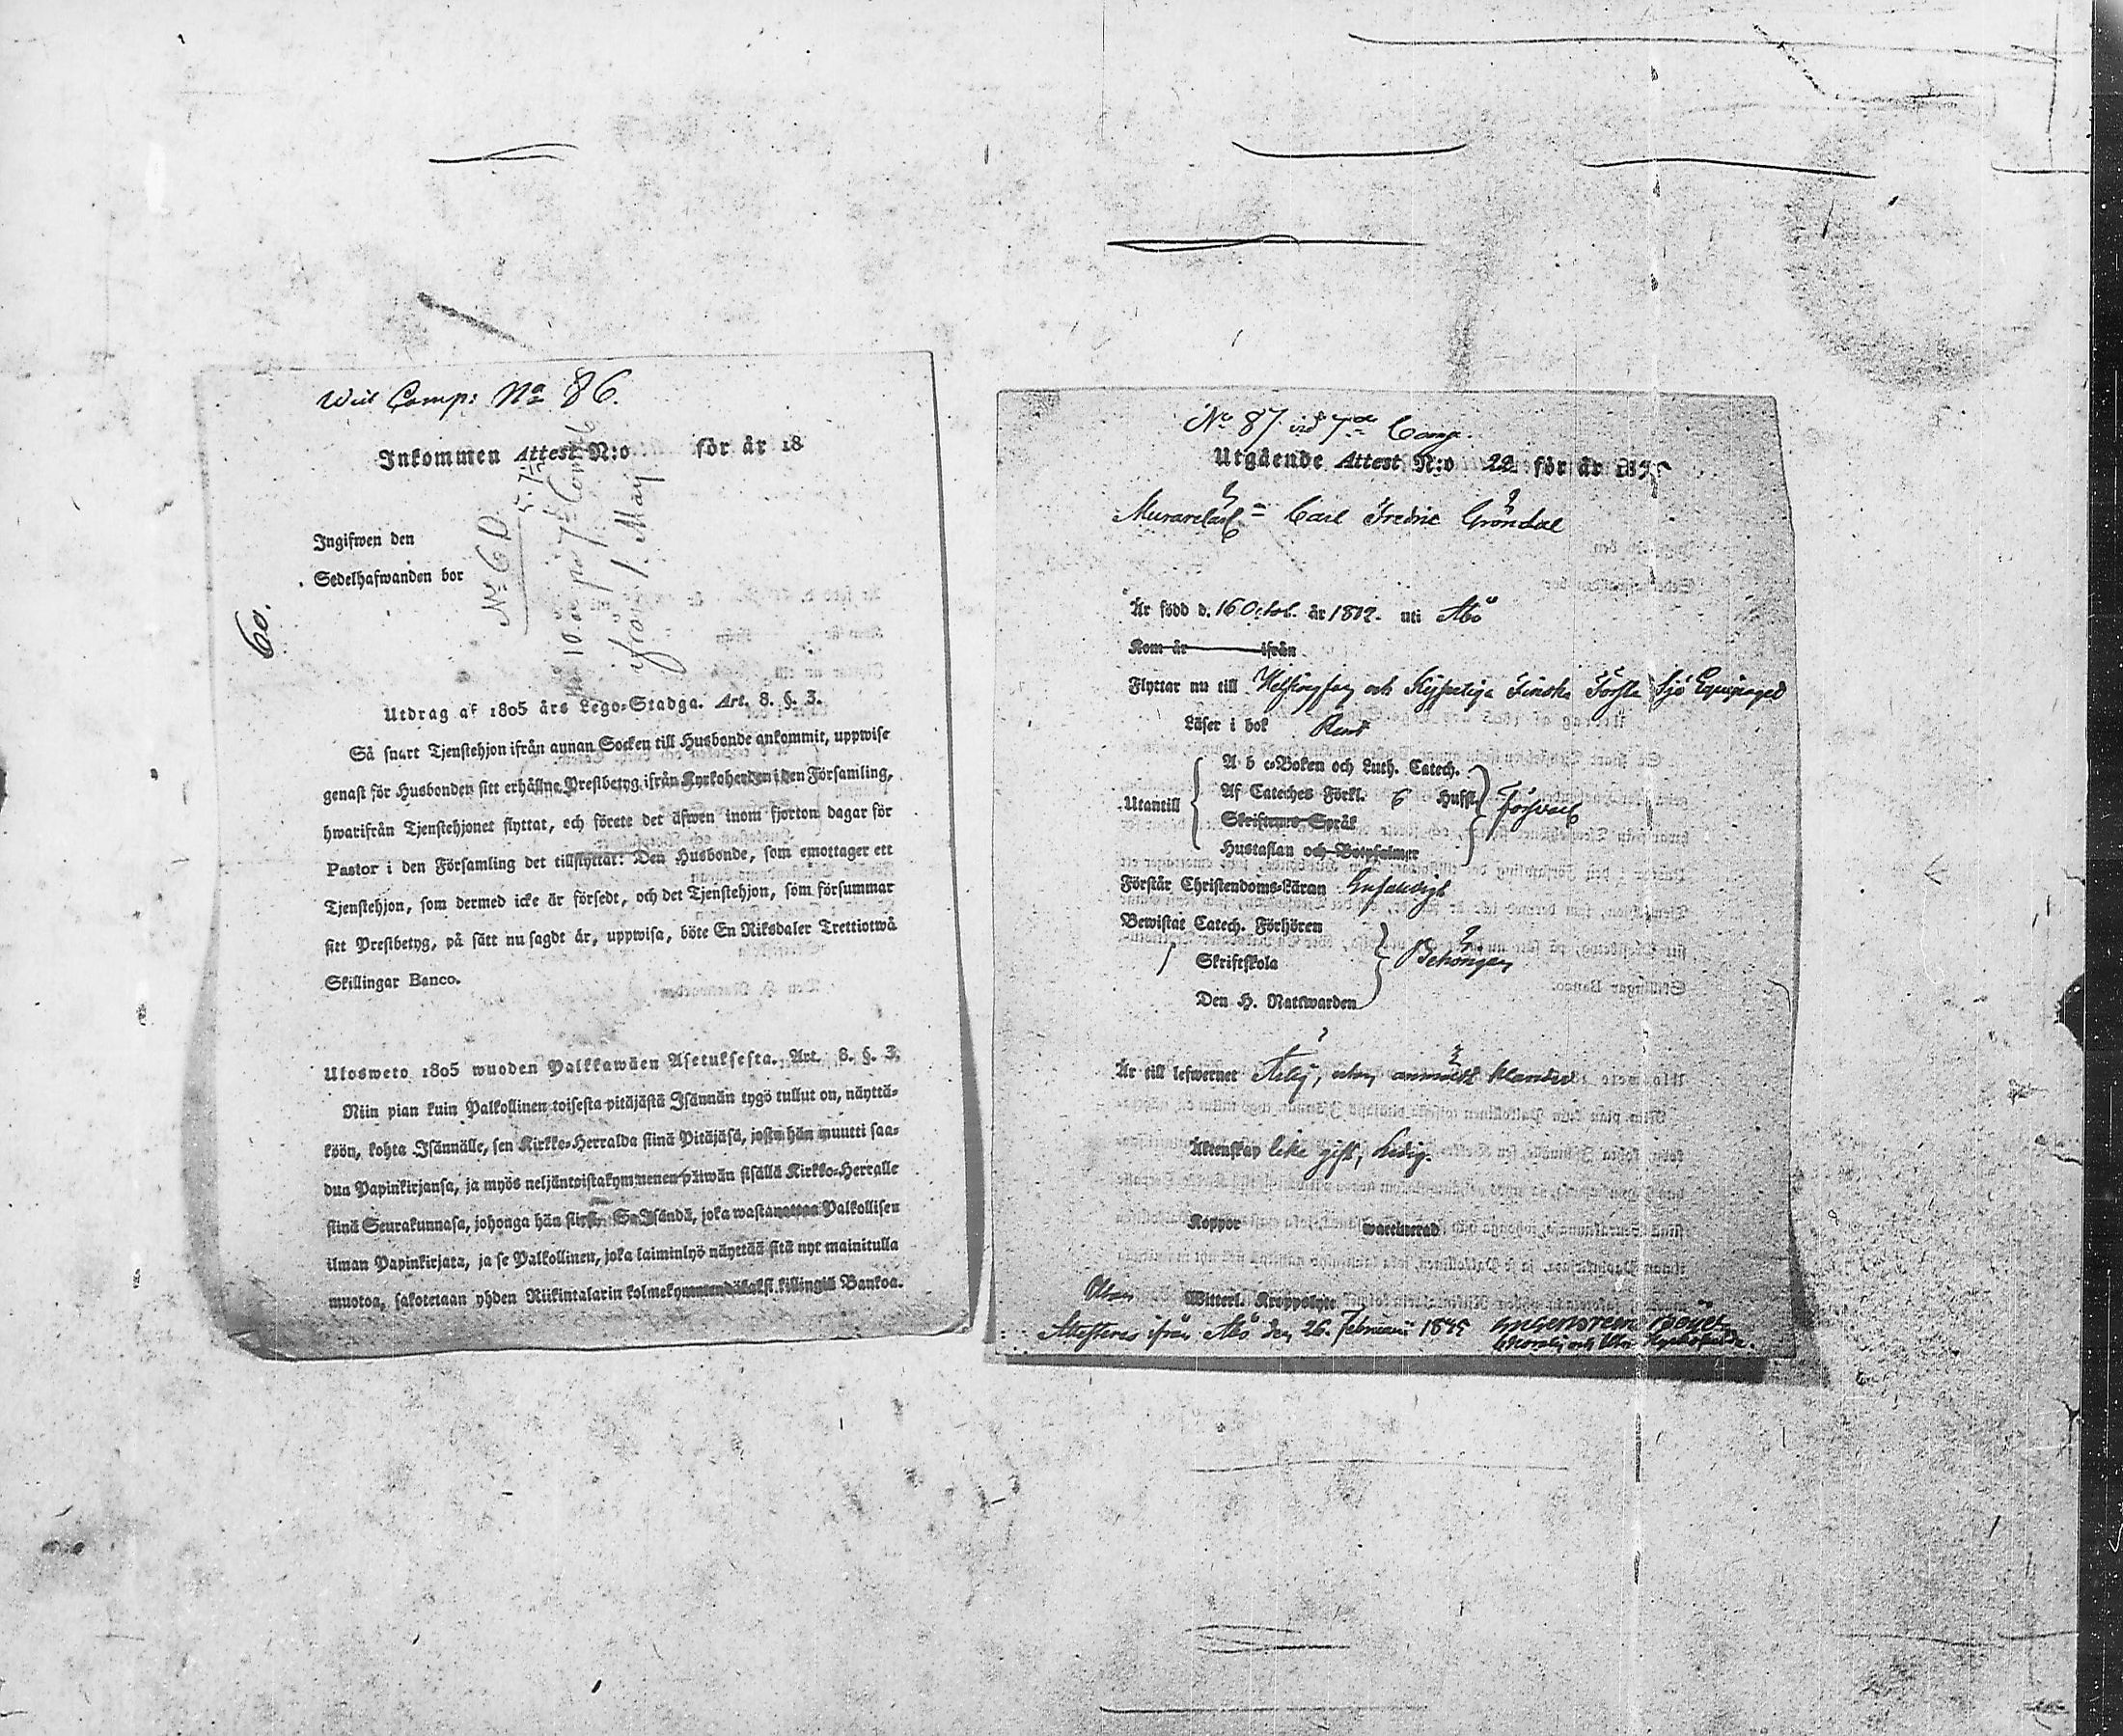 Wid Comp: No 86.
Inkommen Attest N:o för år 18
Ingifwen den
Sedelhafwanden bor
No 6 D.
ifrån 1. May
60.
Utdrag af 1805 års Lego-Stadga. Art. 8. §. 3.
Så snart Tjenstehjon ifrån annan Socken till Husbonde ankommit, uppwise
genast för Husbonden sitt erhållne Prestbetyg ifrån Kyrkoherden i den Församling,
hwarifrån Tjenstehjonet flyttat, och förete det äfwen inom fjorton dagar för
Pastor i den Församling det tillflyttat: Den Husbonde, som emottager ett
Tjenstehjon, som dermed icke är försedt, och det Tjenstehjon, som försummar
sitt Prestbetyg, på sätt nu sagdt är, uppwisa, böte En Riksdaler Trettiotwå
Skillingar Banco.
Ulosweto 1805 wuoden Palkkawäen Asetuksesta. Art. 8. §. 3.
Niin pian kuin Palkollinen toisesta pitäjästä Isännän tygö tullut on, näyttä-
köön, kohta Isännälle, sen Kirkko-Herralda siinä Pitäjäsä, josta hän muutti saa-
dun Papinkirjansa, ja myös neljäntoistakymmenen päiwän sisällä Kirkko-Herralle
siinä Seurakunnasa, johonga hän siirsi. Se Isändä, joka wastanottaa Palkollisen
ilman Papinkirjata, ja se Palkollinen, joka laiminlyö näyttää sitä nyt mainitulla
muotoa, sakotetaan yhden Riikintalarin kolmekymmendäkaksi killingiä Bankoa.
No 87 vid 7de Comp.
Utgående Attest N:o 22 för år 1845
Murarelärl: Carl Fredric Gröndal
Är född d. 16 Octob. år 1812. uti Åbo
Kom år ifrån
Flyttar nu till Helsingfors och Kejserliga Finska Första Sjö Equipaget
Läser i bok Rent
A b c-Boken och Luth. Catech.
Utantill Af Cateches Förkl. 6 Hufst. Förswarl
Skriftenes Språk
Hustaflan och Botpsalmer
Förstår Christendoms-Läran Enfaldigt
Bewistat Catech. Förhören
Skriftskola Behörigen
Den H. Nattwarden
Är till lefwernet utan anmäldt klander
Äktenskap icke gift, ledig.
Koppor waccinerad
Witterl. Kroppslyte
Attesteras ifrån Åbo den 26. Februarii 1845